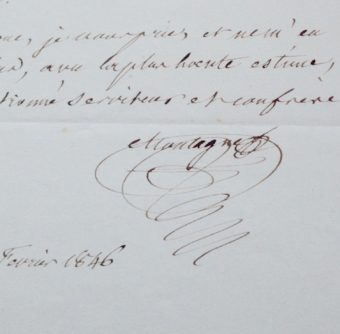 je vous prie, et ne m'en
avec la plus haute estime,
serviteur et confrère
Montagne
Fevrier 1846